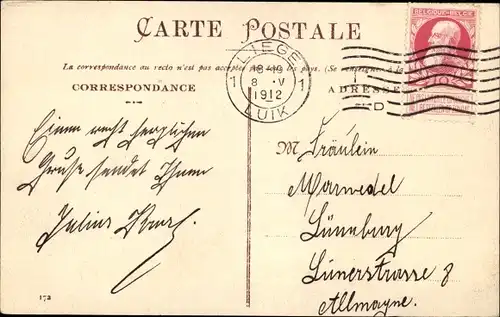 CARTE POSTALE
La correspondance au recto n'est pas acceptée par tous les pays. (Se renseigner à la
CORRESPONDANCE
ADRESSE
BELGIQUE-BELGIË
LIEGE
1 18-19 1
8 V
1912
LUIK
Einen recht herzlichen
Gruss sendet Ihnen
Julius
M
Fräulein
Manvedel
Lünnburg
Lünerstrasse 8
Allmagne.
172